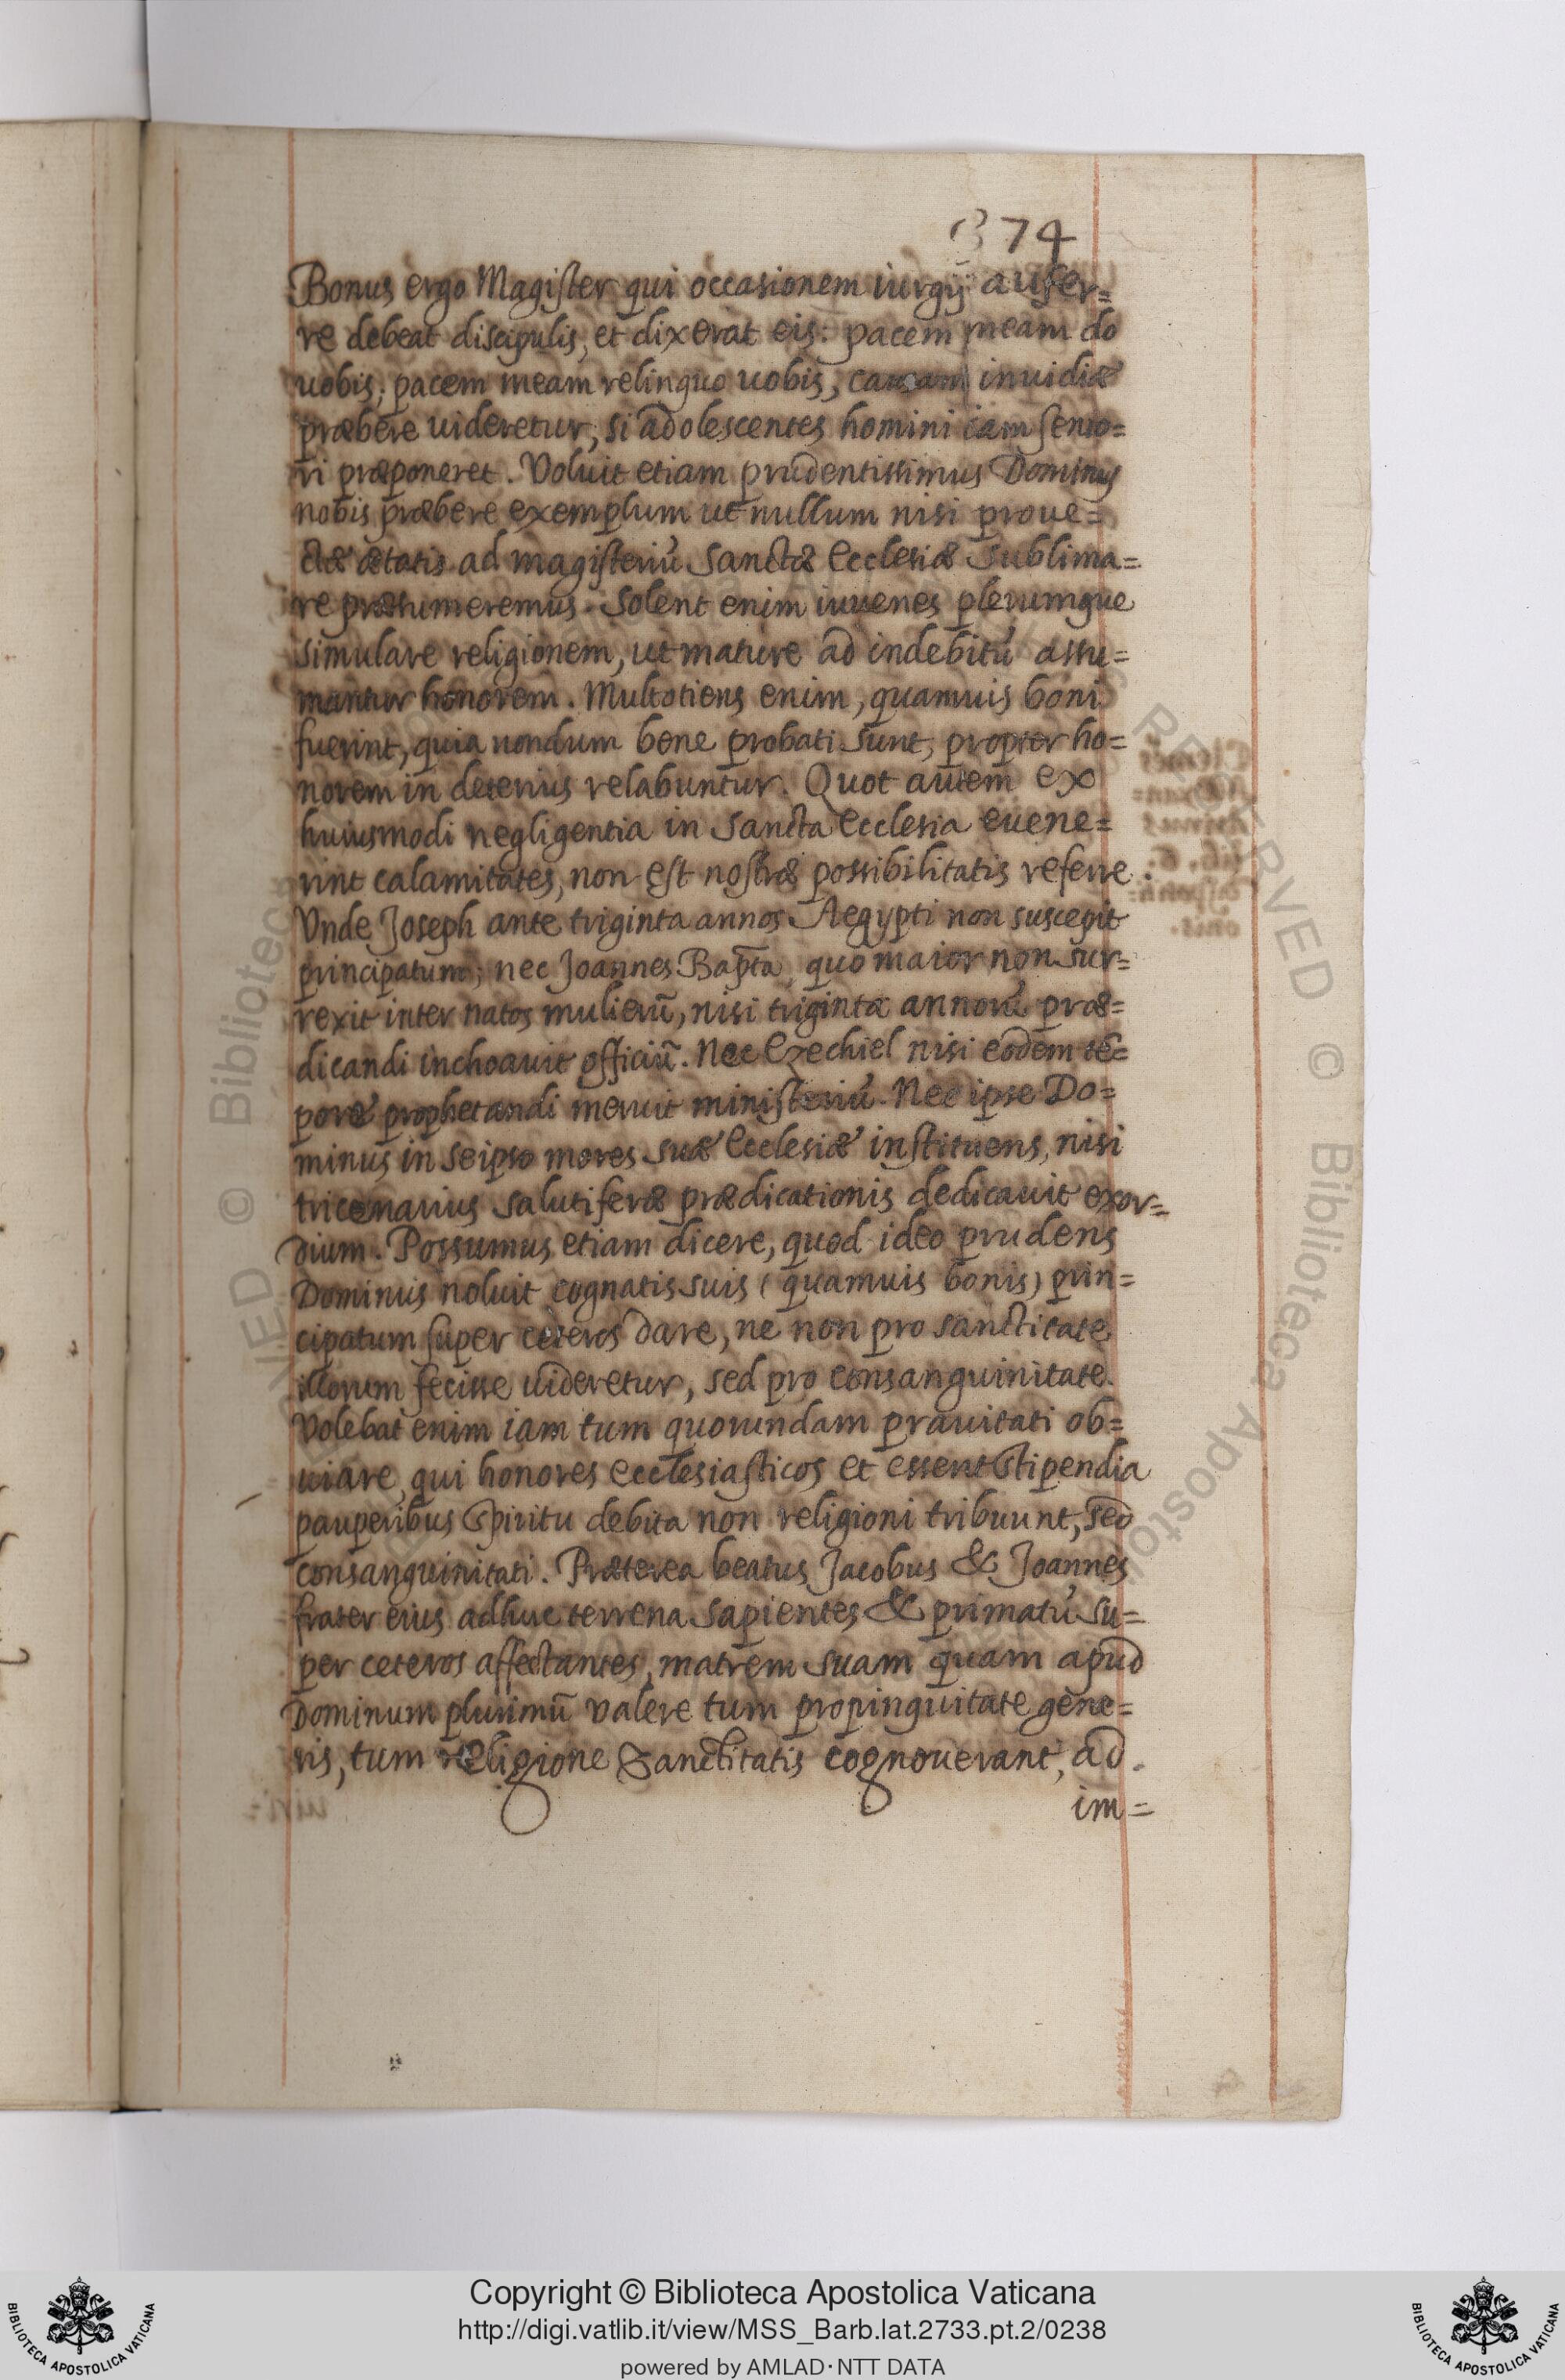 374
Bonus ergo Magister qui occasionem iurgij aufer=
re debeat discipulis, et dixerat eis: pacem meam do
uobis; pacem meam relinquo uobis, causam inuidiæ
præbere uideretur, si adolescentes homini iam senio=
ri præponeret. Voluit etiam prudentissimus Dominus
nobis præbere exemplum ut nullum nisi proue=
ctæ ætatis ad magisteriũ sanctæ Ecclesiæ sublima=
re præsumeremus. Solent enim iuuenes plerumque
simulare religionem, ut mature ad indebitũ assu=
mantur honorem. Multotiens enim, quamuis boni
fuerint, quia nondum bene probati sunt, propter ho=
norem in deterius relabuntur. Quot autem ex
huiusmodi negligentia in sancta Ecclesia euene=
rint calamitates, non est nostræ possibilitatis referre.
Vnde Joseph ante triginta annos Aegypti non suscepit
principatum; nec Joannes Bapta, quo maior non sur=
rexit inter natos mulierũ, nisi triginta annorũ præ=
dicandi inchoauit officiũ. Nec Ezechiel nisi eodem tẽ=
pore prophetandi meruit ministeriũ. Nec ipse Do=
minus in seipso mores suæ Ecclesiæ instituens, nisi
tricenarius salutiferæ prædicationis dedicauit exor=
dium. Possumus etiam dicere, quod ideo prudens
Dominus noluit cognatis suis (quamuis bonis) prin=
cipatum super ceteros dare, ne non pro sanctitate
illorum fecisse uideretur, sed pro consanguinitate.
Volebat enim iam tum quorundam prauitati ob=
uiare, qui honores ecclesiasticos et essent stipendia
pauperibus Spiritu debita non religioni tribuunt, sed
consanguinitati. Præterea beatus Jacobus & Joannes
frater eius adhuc terrena sapientes & primatũ su=
per ceteros affectantes, matrem suam quam apud
Dominum plurimũ valere tum propinquitate gene=
ris, tum religione Sanctitatis cognouerant, ad
im=
Copyright © Biblioteca Apostolica Vaticana
http://digi.vatlib.it/view/MSS_Barb.lat.2733.pt.2/0238
powered by AMLAD·NTT DATA
BIBLIOTECA APOSTOLICA VATICANA
BIBLIOTECA APOSTOLICA VATICANA